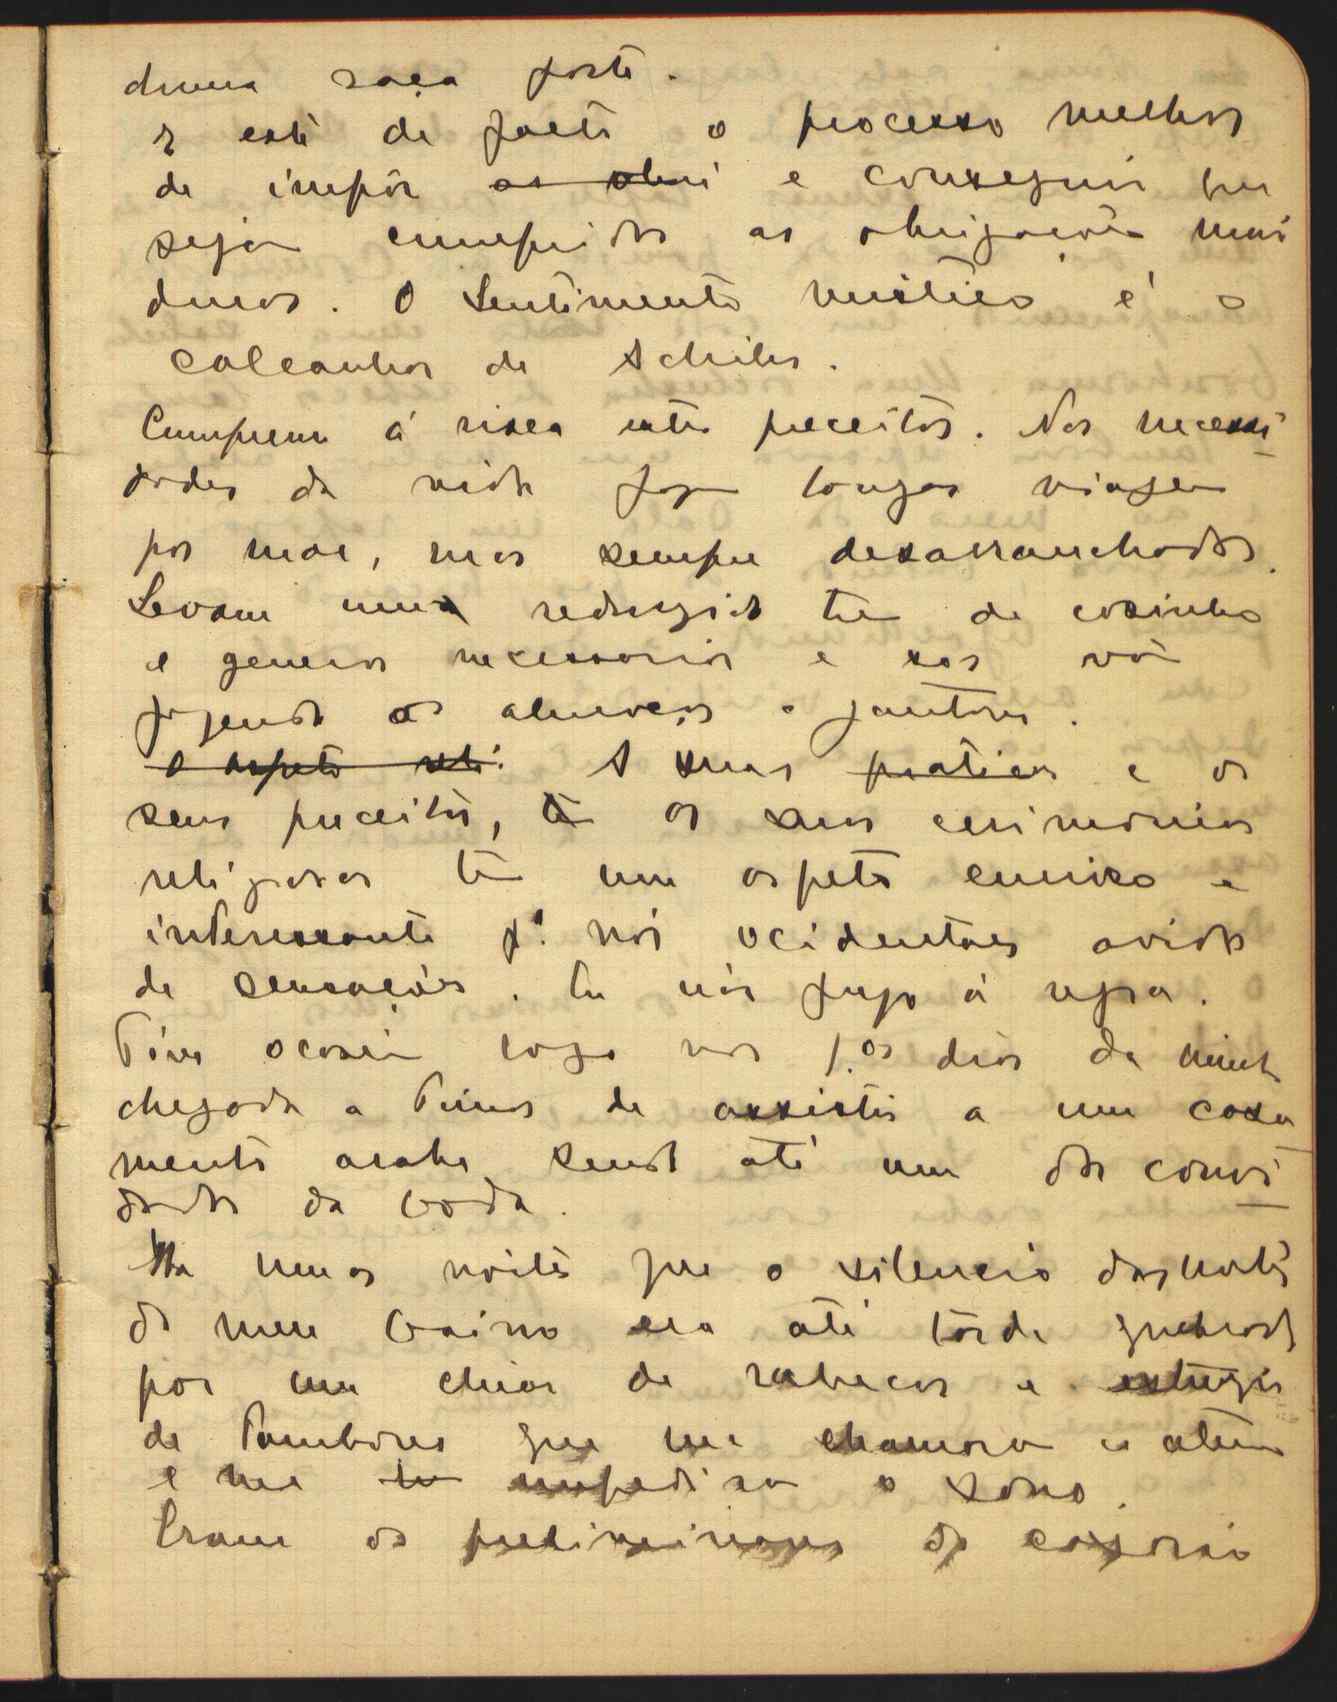 duma raça forte.
E este de facto o processo melhor
de impôr as obri e conseguir que
sejam cumpridas as obrigações mais
duras. O sentimento mistico é o
calcanhar de Achiles.
Cumprem á risca estes preceitos. Nas necessi
dades da vida fazem longas viagens
por mar, mas sempre desarranchados.
Levam um reduzido trem de cosinha
e generos necessarios e eles vão
fazendo os almoços e jantares.
O aspeto reli. As suas praticas e os
seus preceitos, as suas cerimonias
religiosas tem um aspeto curioso e
interessante pª nós ocidentaes avidos
de sensações. Eu não fujo á regra.
Tive ocasião logo nos 1.os dias da minha
chegada a Timor de assistir a um casa
mento arabe sendo até um dos convi
dados da boda.
Ha umas noites que o silencio das noites
do meu bairro era até tarde quebrado
por um chiar de rabecas e estrugir
de tambores que me chamavam a atenção
e me impediam o sono.
Eram os preliminares do casorio